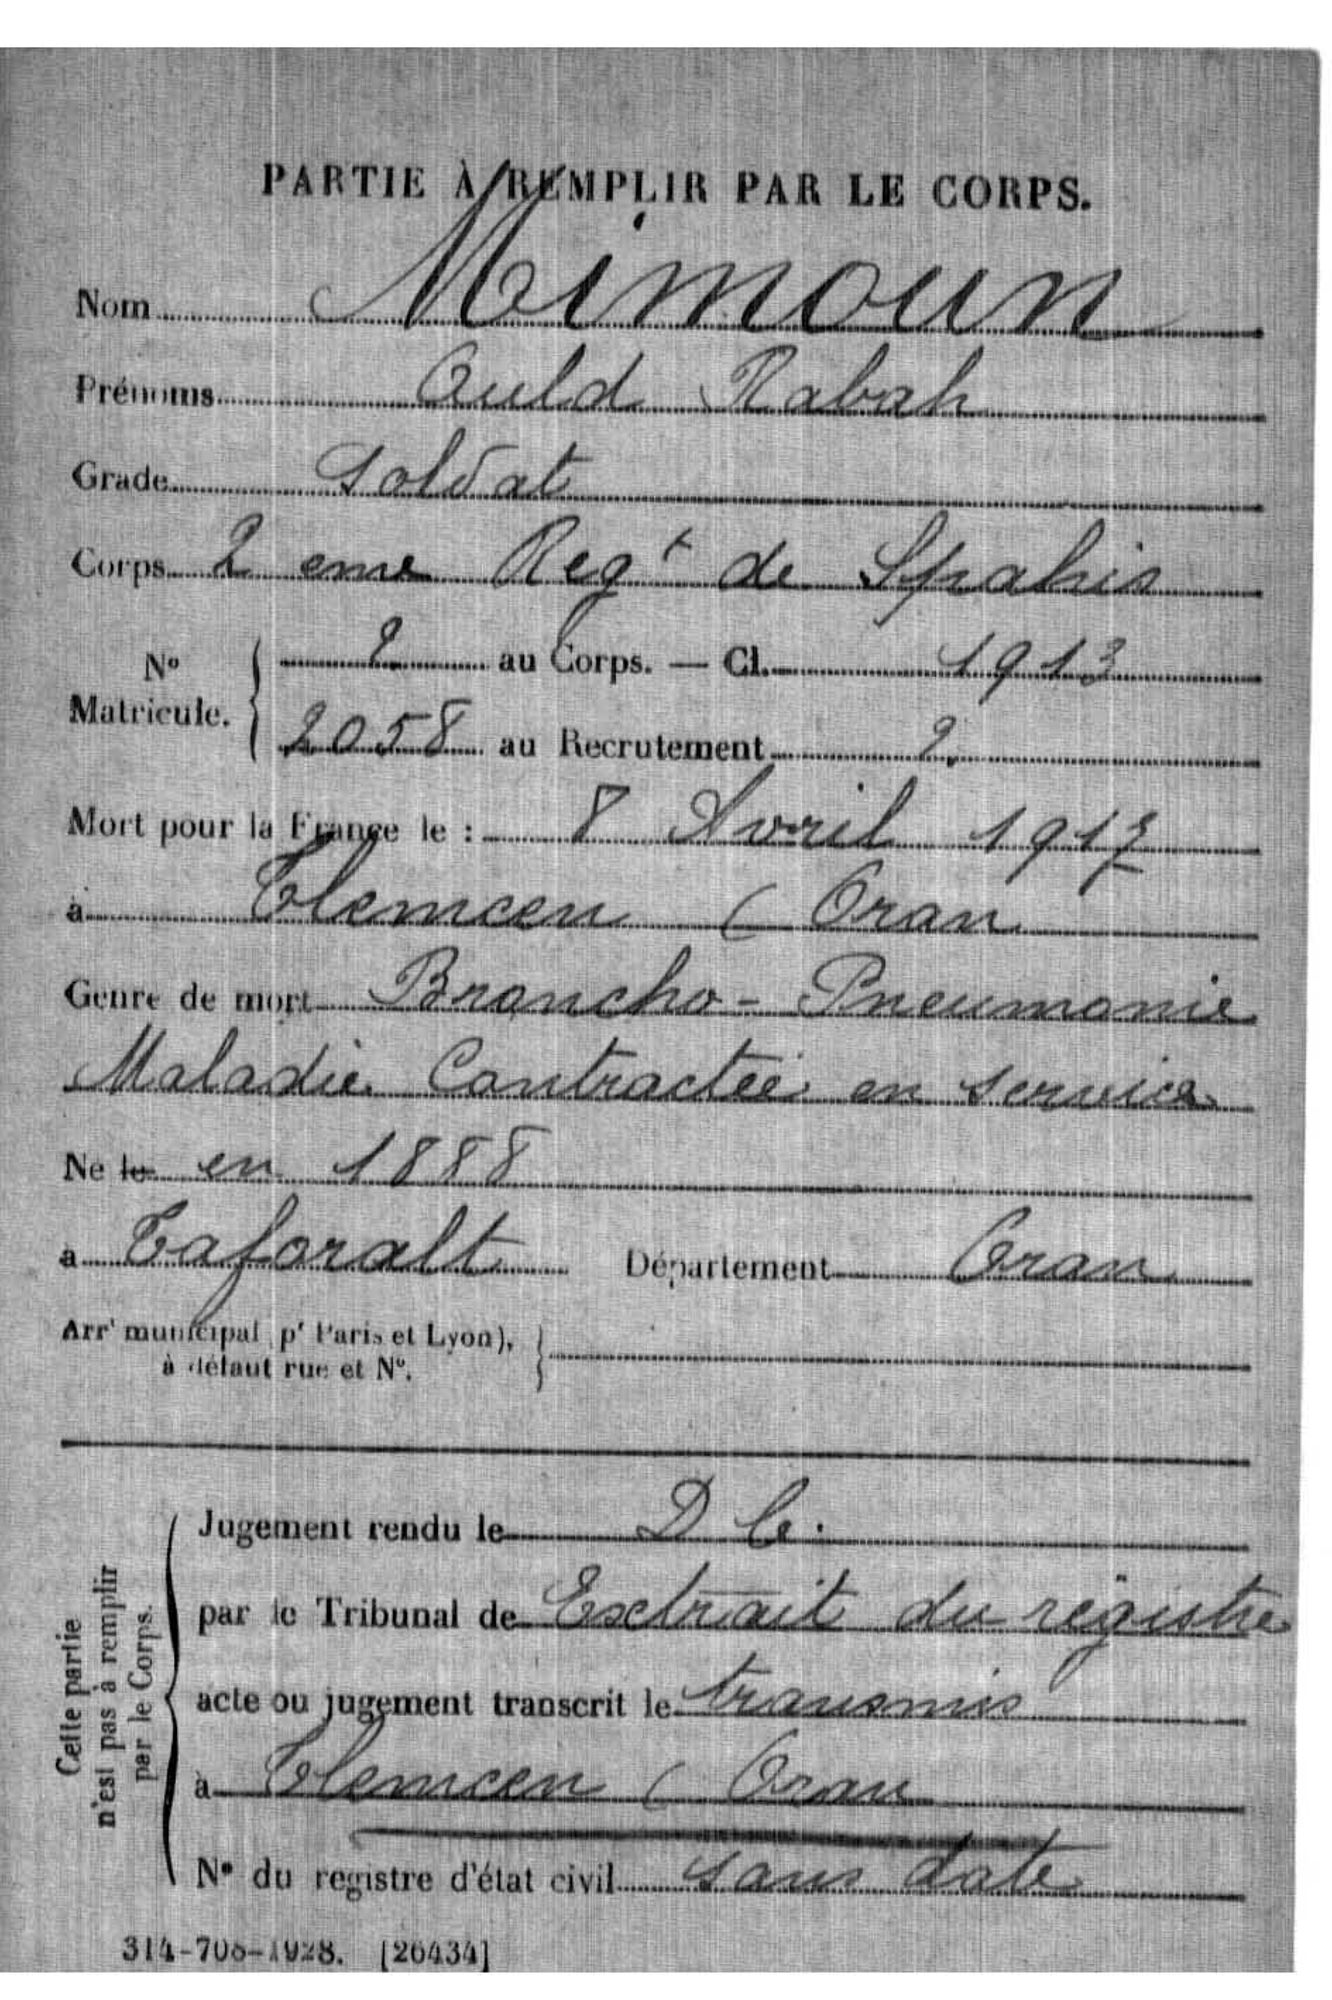 PARTIE À REMPLIR PAR LE CORPS.
Nom Mimoun
Prénoms Ould Rabah
Grade Soldat
Corps 2 eme Regt de Spahis
N° Matricule. { ? au Corps. — Cl. 1913
2058 au Recrutement ?
Mort pour la France le : 8 Avril 1917
à Tlemcen ( Oran
Genre de mort Broncho - Pneumonie
Maladie Contractée en service
Né le en 1888
à Taforalt Département Oran
Arrt municipal (pr Paris et Lyon),
à défaut rue et N°.
Cette partie n'est pas à remplir par le Corps.
Jugement rendu le D C.
par le Tribunal de Extrait du registre
acte ou jugement transcrit le transmis
à Tlemcen ( Oran
N° du registre d'état civil sans date
314-708-1928. [26434]